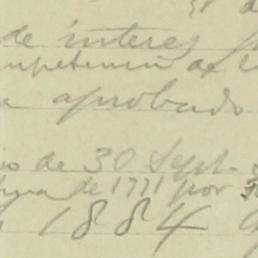 de interes
competencia de
aprobado
de 30 Sept.
de 1771 por
1884